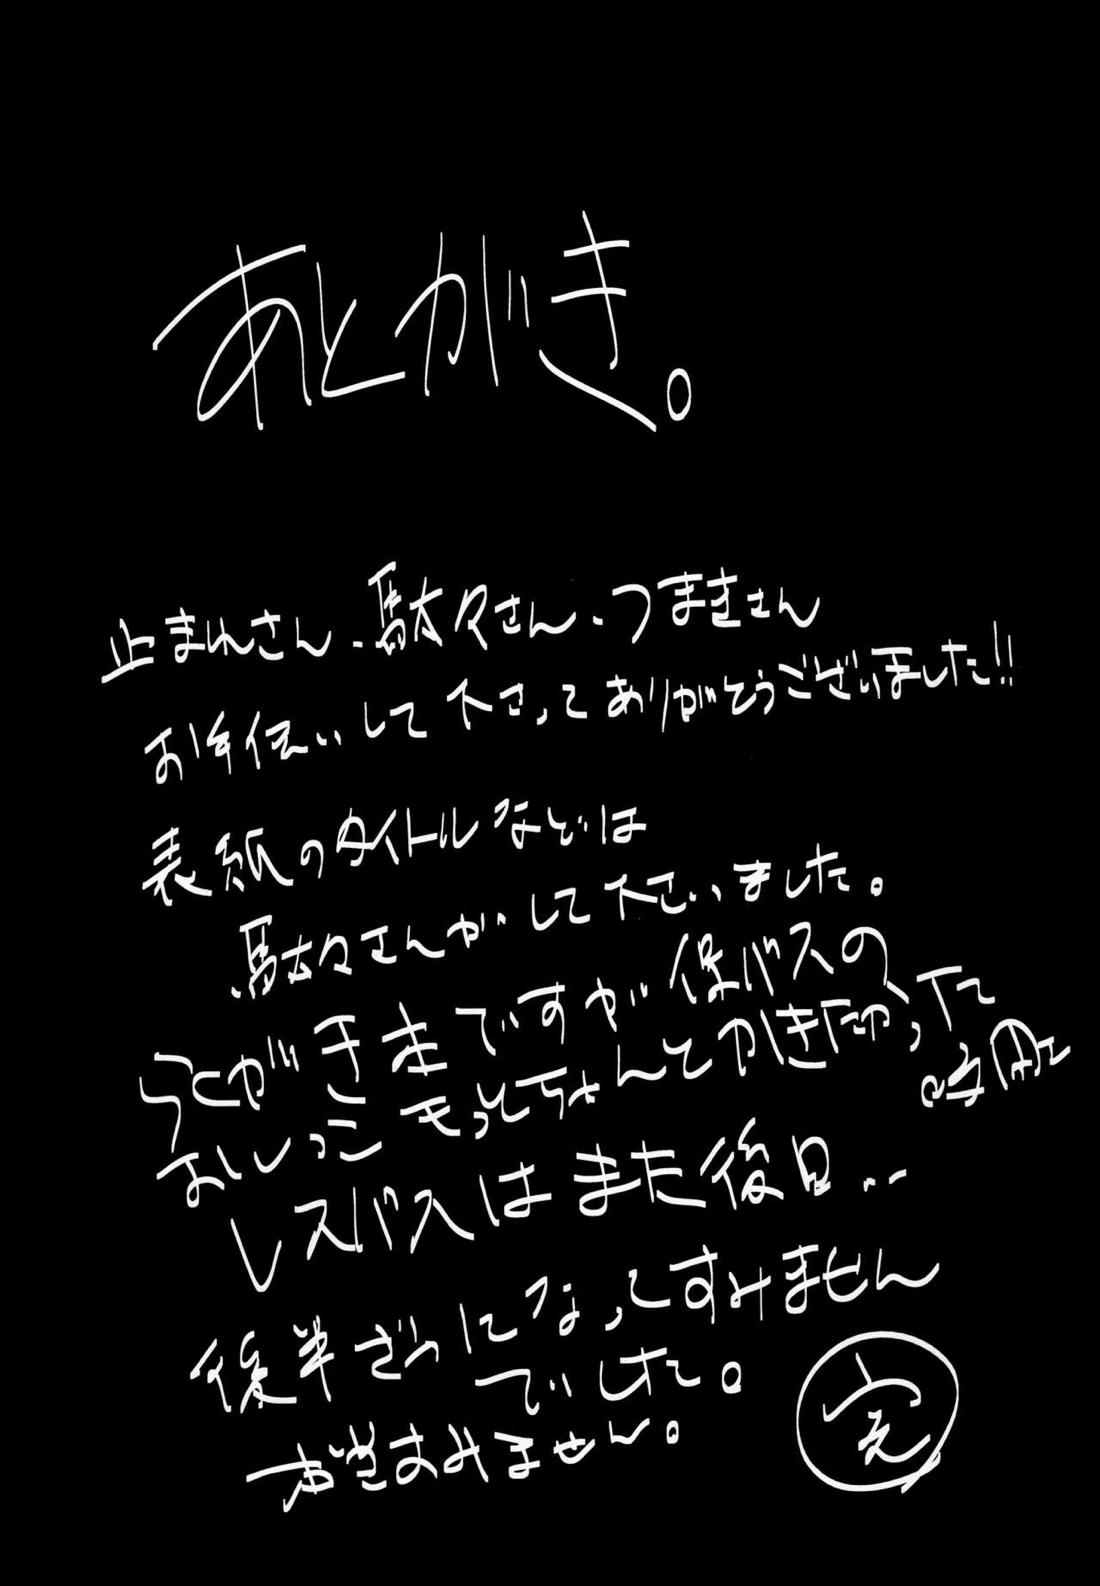 あとがき。
止まれさん、駄々さん、つまきさん
お手伝いして下さってありがとうございました!!
表紙のタイトルなどは
駄々さんがして下さいました。
らくがきまでですが保バスの
おしっこもっとちゃんとかきたかった
レスバスはまた後日…
後半ざつになってすみません
でした。
すみません。
完